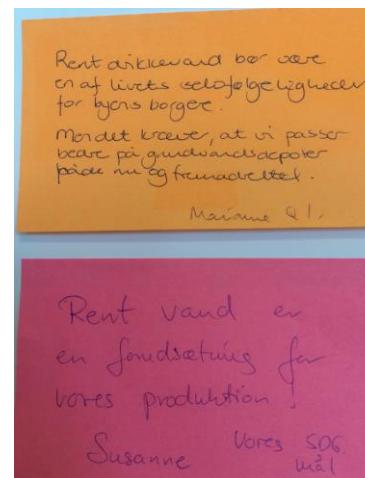 Rent drikkevand bør være
en af livets selvfølgeligheder
for byens borgere.
Men det kræver, at vi passer
bedre på grundvandsdepoter
både nu og fremadrettet.
Marianne
Rent vand er
en forudsætning for
vores produktion!
Susanne
Vores SDG
mål